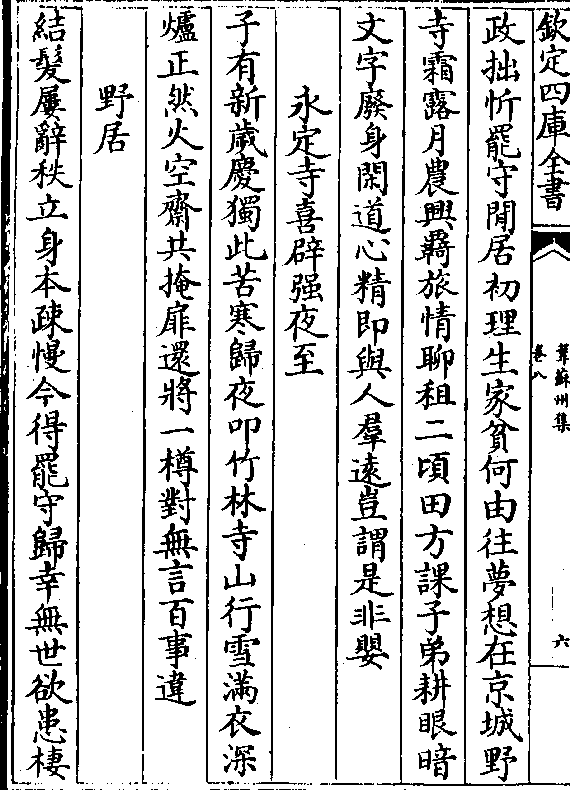 欽定四庫全書
韋蘇州集
卷八
六
政拙忻罷守閒居初理生家貧何由往夢想在京城野
寺霜露月農興羇旅情聊租二頃田方課子弟耕眼暗
文字廢身閑道心精即與人羣遠豈謂是非嬰
永定寺喜辟强夜至
子有新歲慶獨此苦寒歸夜叩竹林寺山行雪滿衣深
爐正然火空齋共掩扉還將一樽對無言百事違
野居
結髮屢辭秩立身本疎慢今得罷守歸幸無世欲患棲